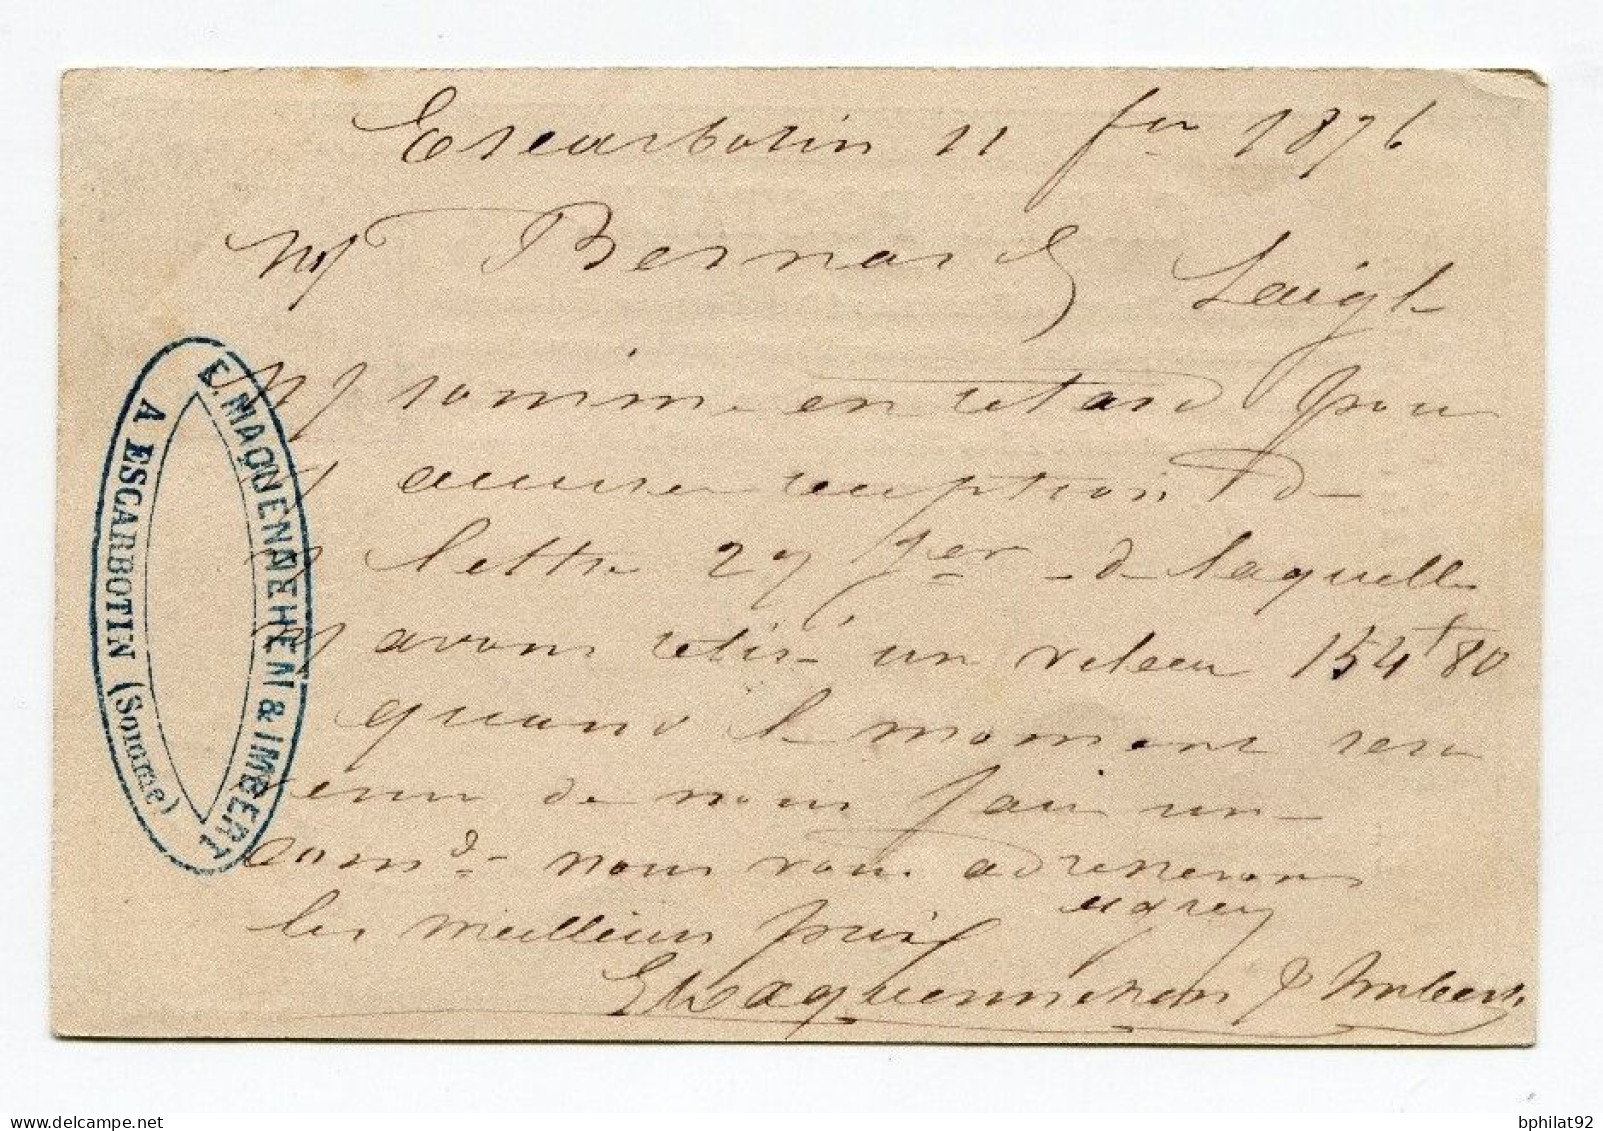 Escarbotin 11 fer 1876
Mr Bernard Laigle
Ns sommes en retard pour
v accuser reception de
v lettre 29 Jer de laquelle
ns avons retiré un valeur 154f 80
quand le moment sera
venu de nous faire une
comde nous vous adresserons
les meilleurs prix
agréez
E Maquennehen & Imbert
E. MAQUENNEHEN & IMBERT
A ESCARBOTIN (Somme)
bphilat92